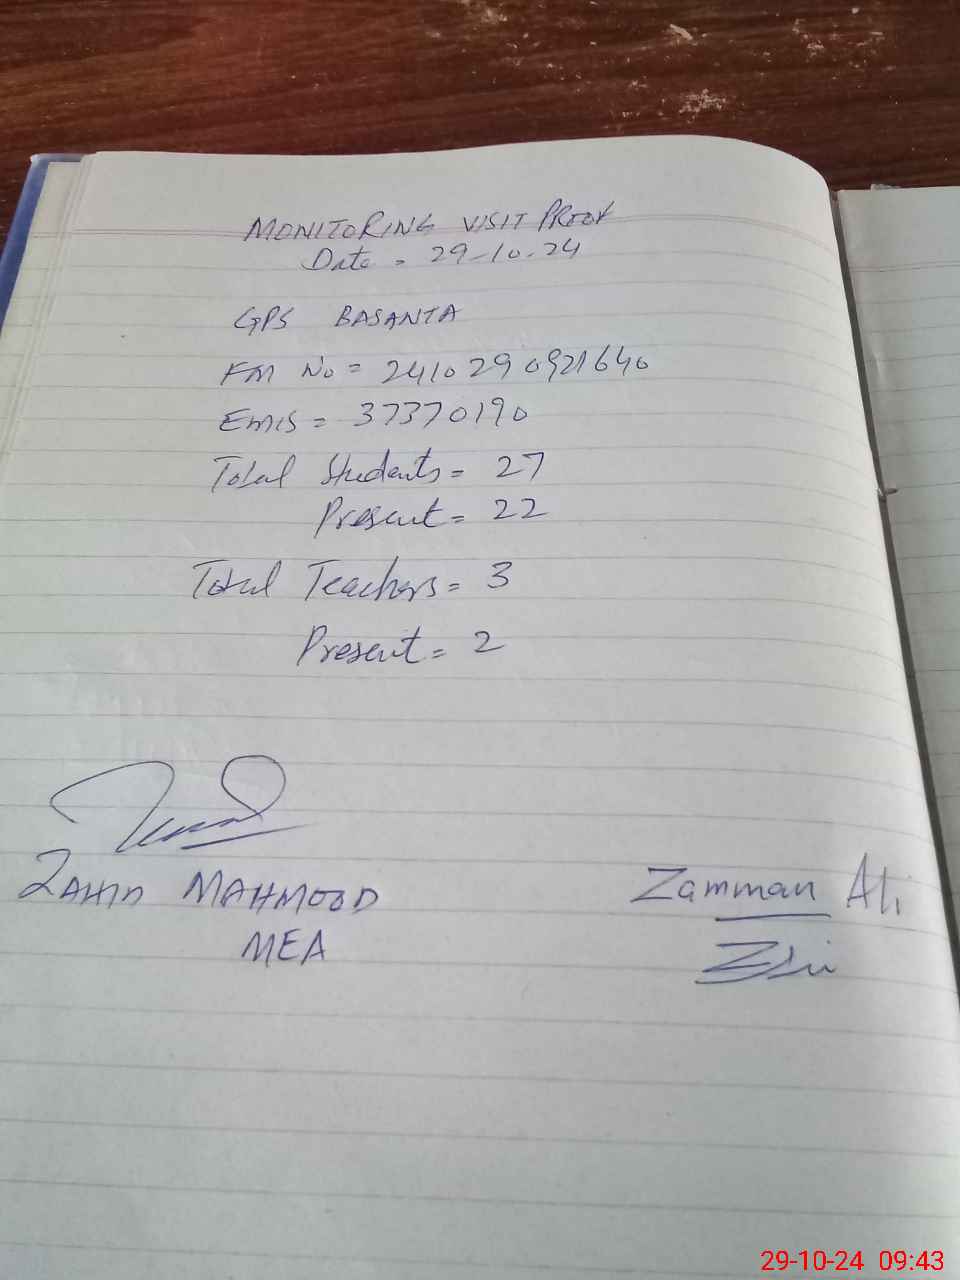 MONITORING VISIT PROOF
Date = 29-10-24
GPS BASANTA
FM No = 2410290921640
EMIS = 37370190
Total Students = 27
Present = 22
Total Teachers = 3
Present = 2
ZAHID MAHMOOD
MEA
Zamman Ali
29-10-24 09:43